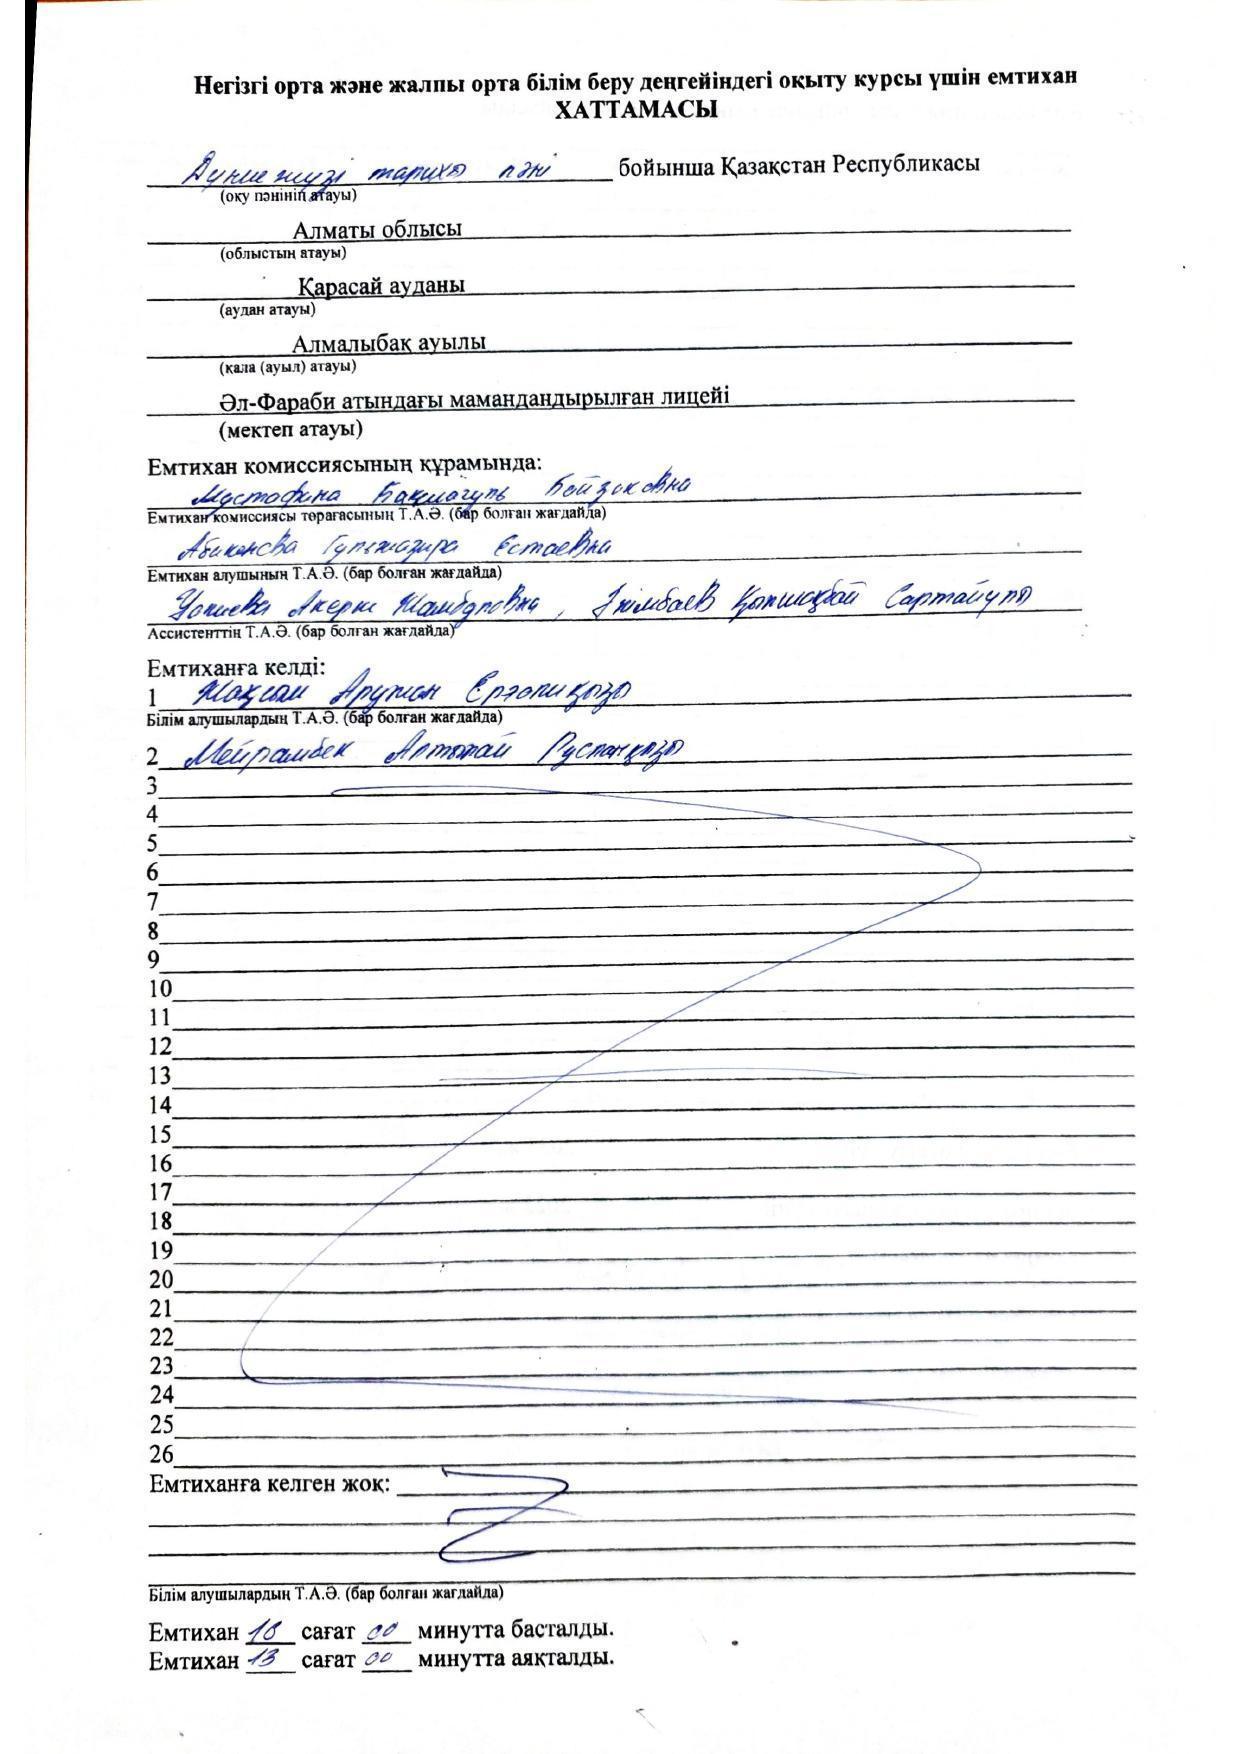 Негізгі орта және жалпы орта білім беру деңгейіндегі оқыту курсы үшін емтихан
ХАТТАМАСЫ
Дүние жүзі тарихы пәні бойынша Қазақстан Республикасы
(оқу пәнінің атауы)
Алматы облысы
(облыстың атауы)
Қарасай ауданы
(аудан атауы)
Алмалыбақ ауылы
(қала (ауыл) атауы)
Әл-Фараби атындағы мамандандырылған лицейі
(мектеп атауы)
Емтихан комиссиясының құрамында:
Мустафина Бақытгуль
Емтихан комиссиясы төрағасының Т.А.Ә. (бар болған жағдайда)
Абикенова Гульжазира Естаевна
Емтихан алушының Т.А.Ә. (бар болған жағдайда)
Акерке Жамбуловна, Сартайұлы
Ассистенттің Т.А.Ә. (бар болған жағдайда)
Емтиханға келді:
1 Жақсым Аружан
Білім алушылардың Т.А.Ә. (бар болған жағдайда)
2 Мейрамбек Алтынай Рустамқызы
3
4
5
6
7
8
9
10
11
12
13
14
15
16
17
18
19
20
21
22
23
24
25
26
Емтиханға келген жоқ:
Білім алушылардың Т.А.Ә. (бар болған жағдайда)
Емтихан 10 сағат 00 минутта басталды.
Емтихан 13 сағат 00 минутта аяқталды.